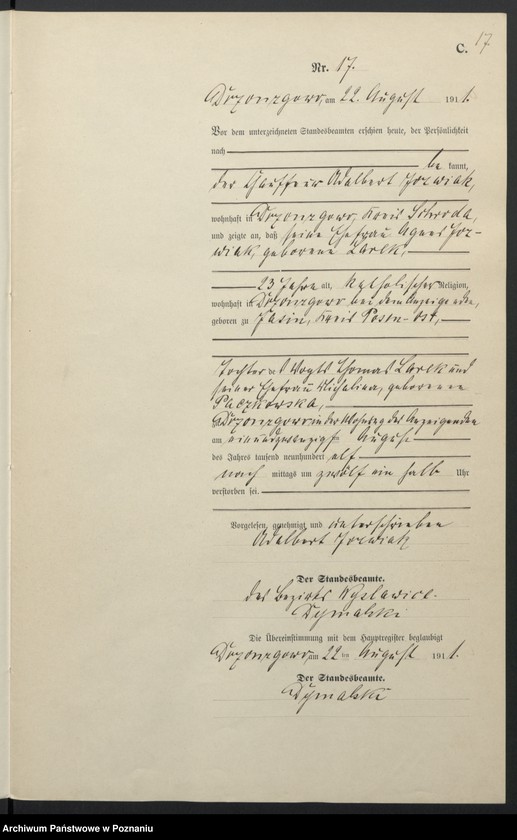 C. 17
Nr. 17.
am 22. August 1911.
Vor dem unterzeichneten Standesbeamten erschien heute, der Persönlichkeit
nach
be kannt,
der Adalbert Jozwiak,
wohnhaft in Kreis Schroda,
und zeigte an, daß seine Ehefrau Agnes Joz-
wiak, geborene
23 Jahre alt, katholischer Religion,
wohnhaft in bei dem Anzeigenden,
geboren zu Jasin, Kreis Posen-Ost,
Tochter des Vogts Thomas und
seiner Ehefrau Michalina, geborenen
Paczkowska,
in der Wohnung des Anzeigenden
am einundzwanzigsten August
des Jahres tausend neunhundert elf
nach mittags um zwölf ein halb Uhr
verstorben sei.
Vorgelesen, genehmigt und unterschrieben
Adalbert Jozwiak
Der Standesbeamte.
des Bezirks
Die Übereinstimmung mit dem Hauptregister beglaubigt
am 22 ten August 1911.
Der Standesbeamte.
Archiwum Państwowe w Poznaniu